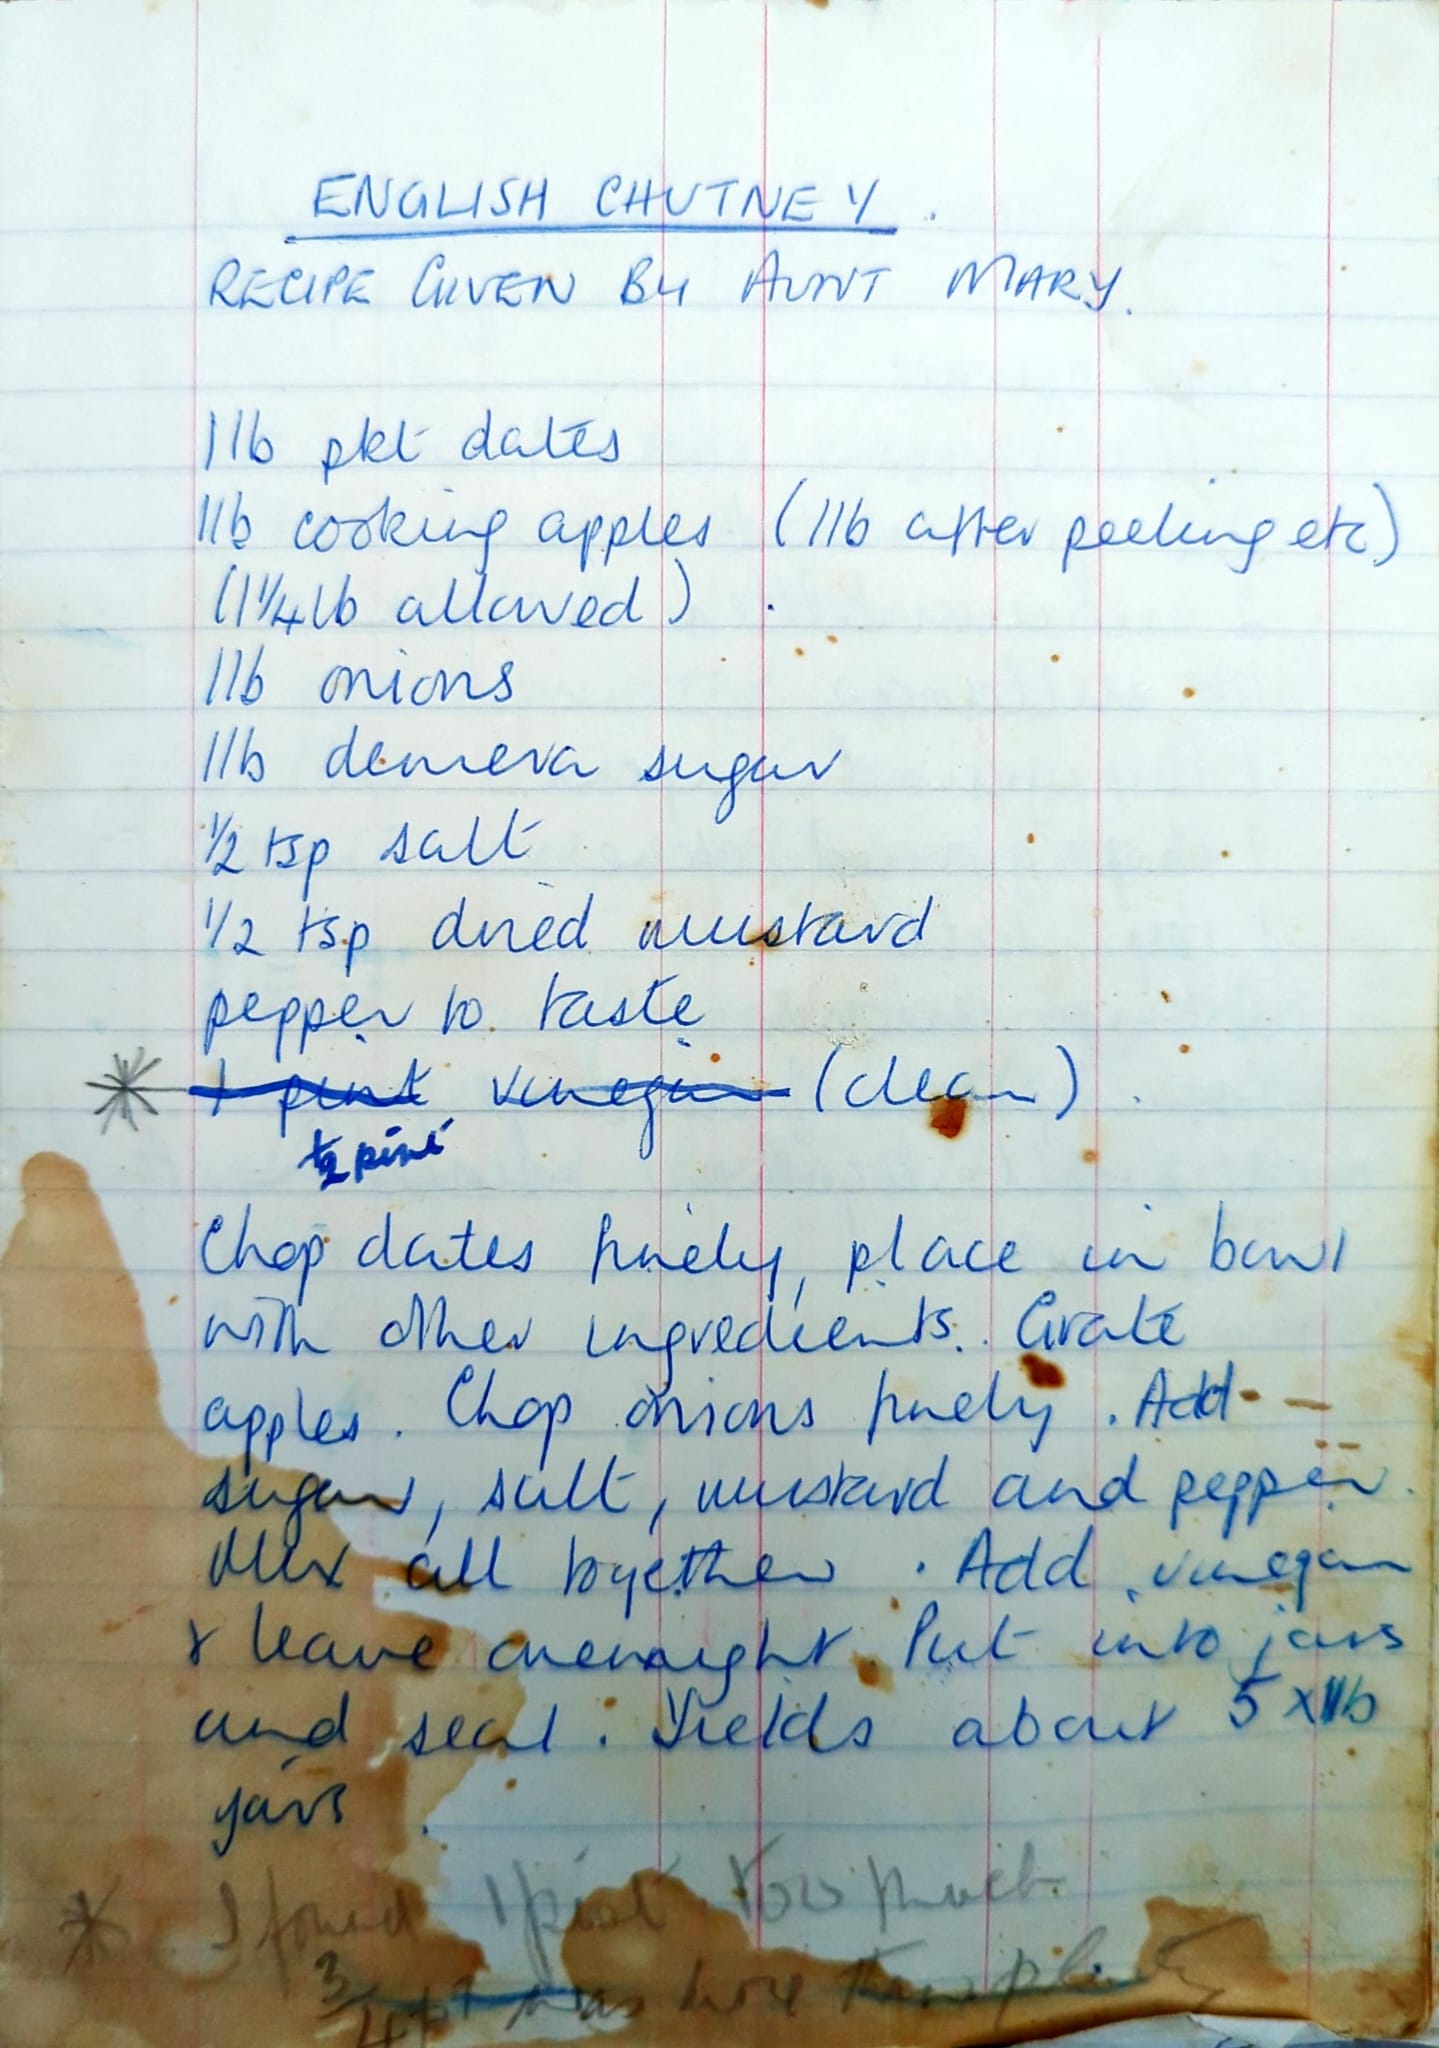 ENGLISH CHUTNEY.
RECIPE GIVEN BY AUNT MARY.
1lb pkt dates
1lb cooking apples (1lb after peeling etc)
(1¼lb allowed).
1lb onions
1lb demerera sugar
½ tsp salt
½ tsp dried mustard
pepper to taste
* 1 pint vinegar (clear).
½ pint
Chop dates finely, place in bowl
with other ingredients. Grate
apples. Chop onions finely. Add
sugar, salt, mustard and pepper.
Mix all together. Add vinegar
& leave overnight. Put into jars
and seal. Yields about 5 x 1lb
jars.
* I found 1 pint too much.
3/4 pt was more than plenty